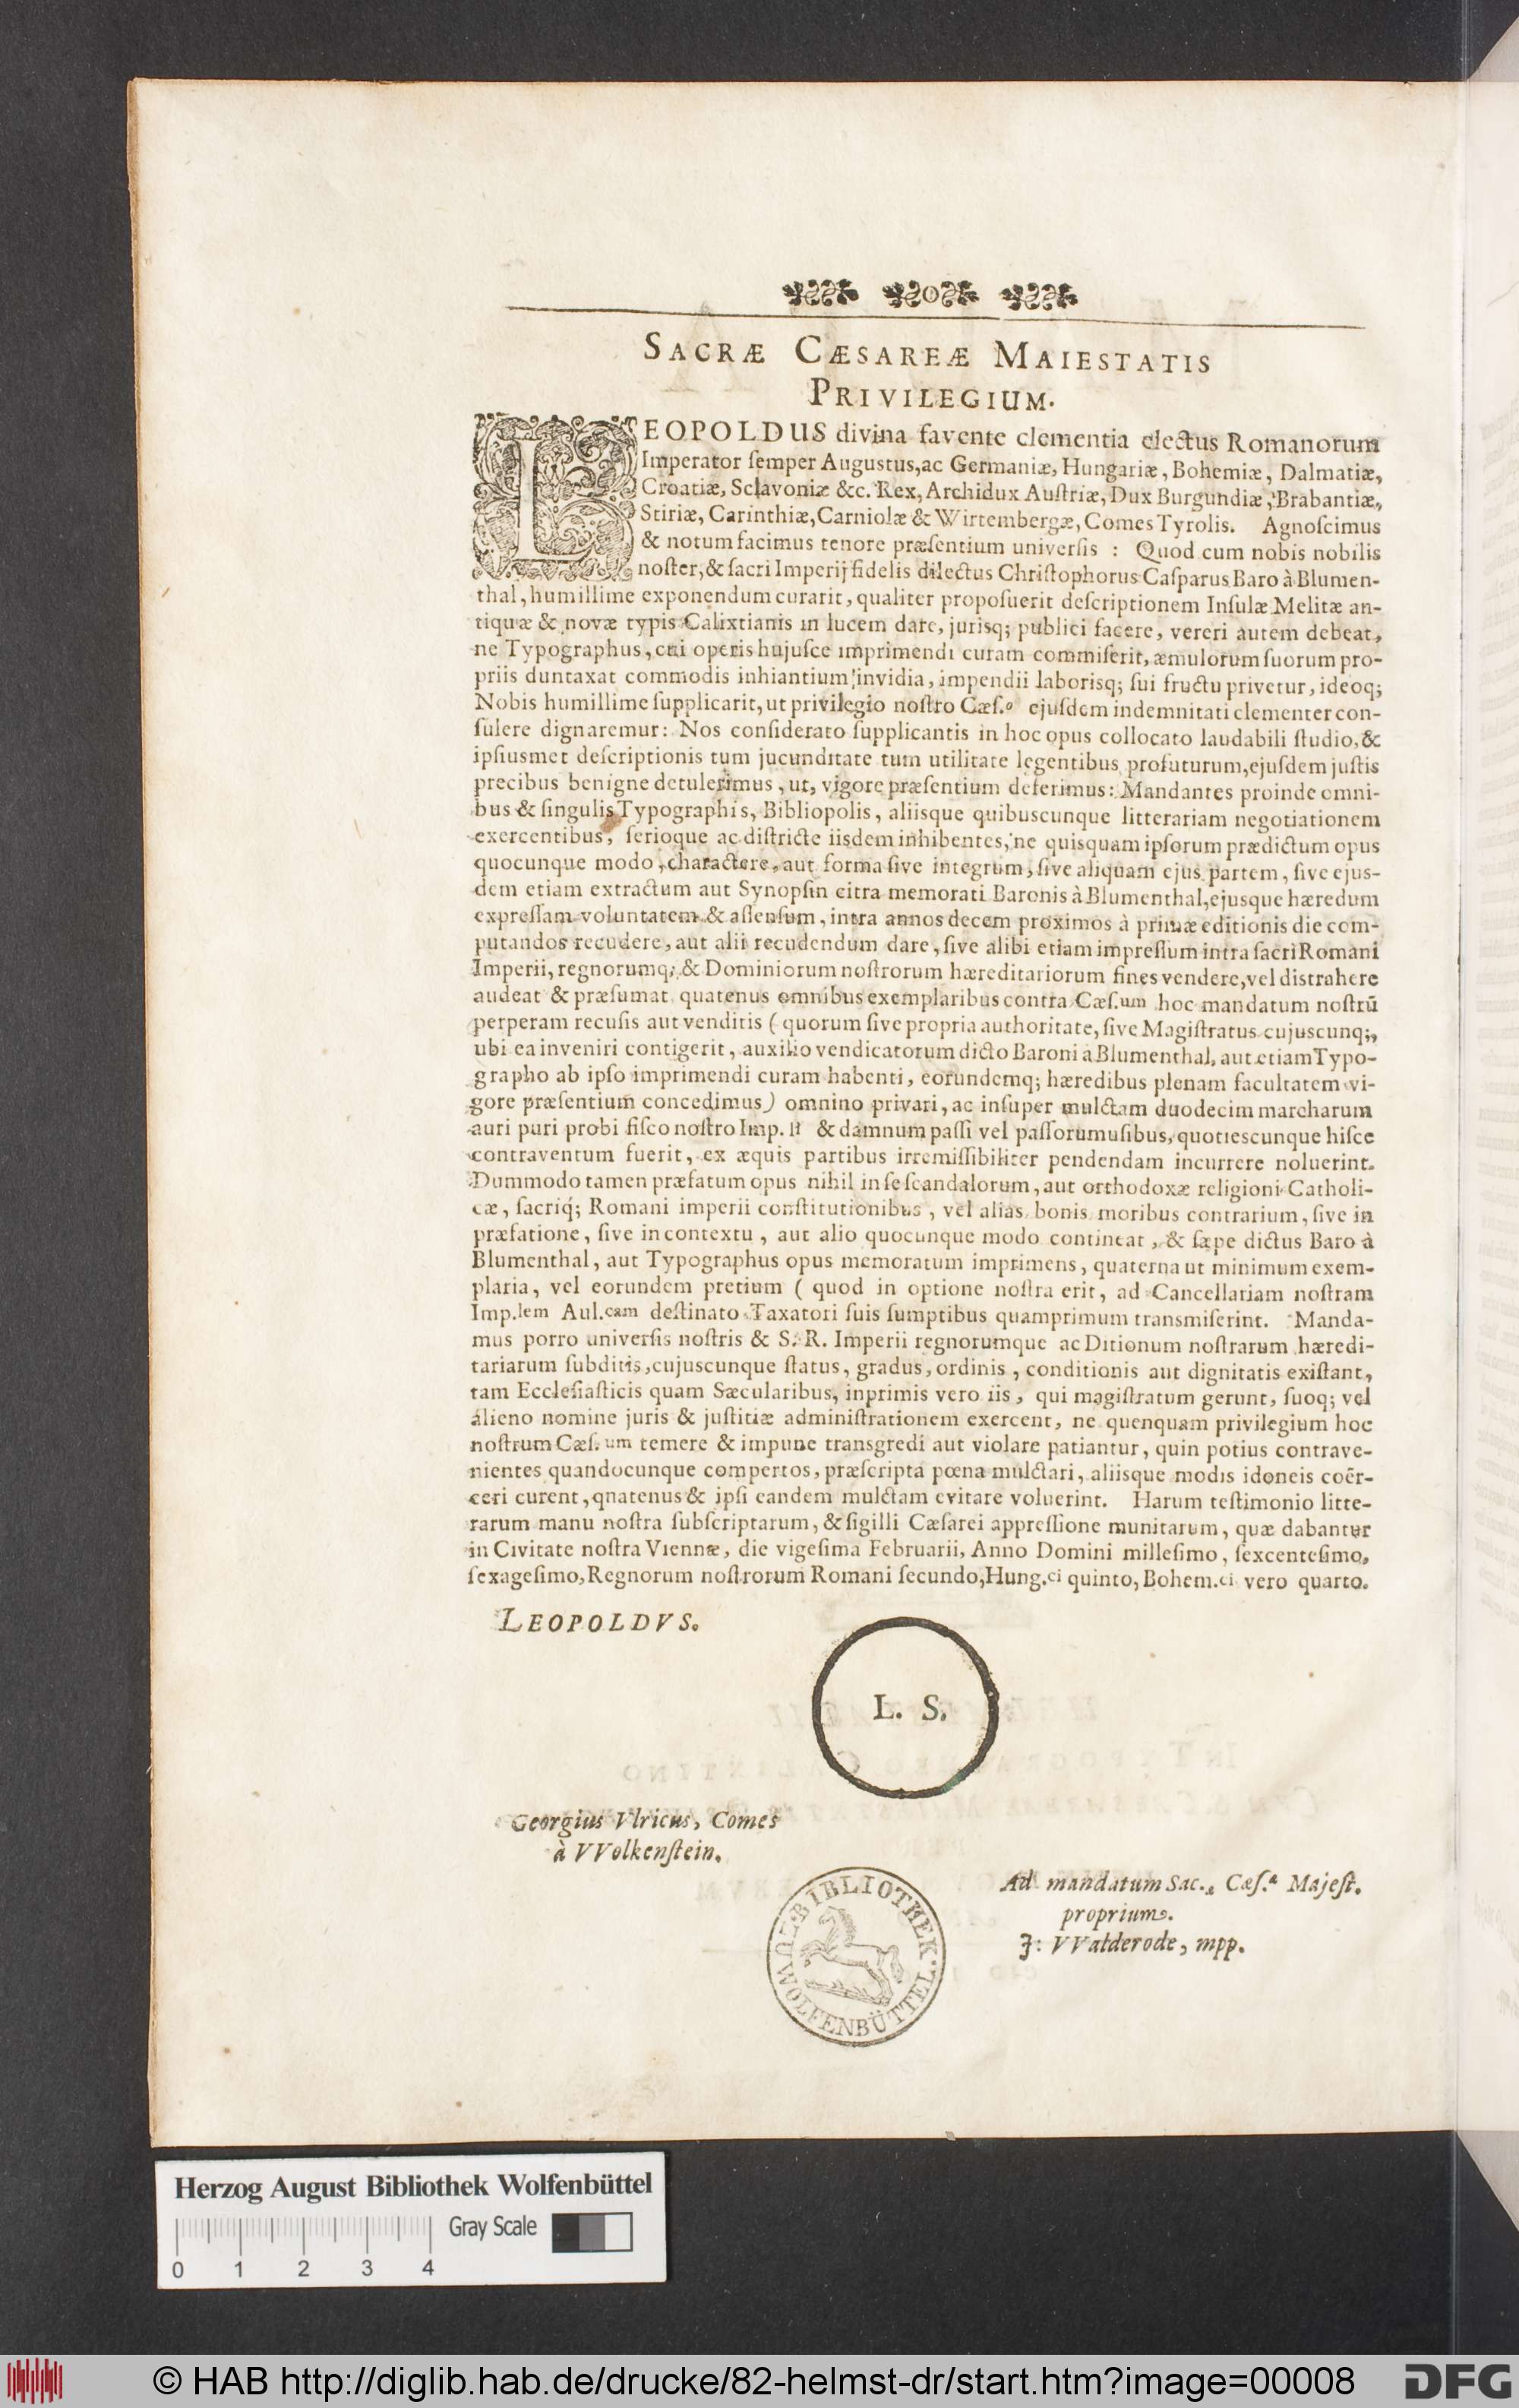 SACRÆ CÆSAREÆ MAIESTATIS
PRIVILEGIUM.
LEOPOLDUS divina favente clementia electus Romanorum
Imperator ſemper Auguſtus,ac Germaniæ, Hungariæ, Bohemiæ, Dalmatiæ,
Croatiæ, Sclavoniæ &c. Rex, Archidux Auſtriæ, Dux Burgundiæ, Brabantiæ,
Stiriæ, Carinthiæ, Carniolæ & Wirtembergæ, Comes Tyrolis. Agnoſcimus
& notum facimus tenore præſentium univerſis : Quod cum nobis nobilis
noſter, & ſacri Imperij fidelis dilectus Chriſtophorus Caſparus Baro à Blumen-
thal, humillime exponendum curarit, qualiter propoſuerit deſcriptionem Inſulæ Melitæ an-
tiquæ & novæ typis Calixtianis in lucem dare, jurisq; publici facere, vereri autem debeat,
ne Typographus, cui operis hujuſce imprimendi curam commiſerit, æmulorum ſuorum pro-
priis duntaxat commodis inhiantium invidia, impendii laborisq; ſui fructu privetur, ideoq;
Nobis humillime ſupplicarit, ut privilegio noſtro Cæſ.o ejuſdem indemnitati clementer con-
ſulere dignaremur: Nos conſiderato ſupplicantis in hoc opus collocato laudabili ſtudio, &
ipſiusmet deſcriptionis tum jucunditate tum utilitate legentibus profuturum, ejuſdem juſtis
precibus benigne detulerimus, ut, vigore præſentium deferimus: Mandantes proinde omni-
bus & ſingulis Typographis, Bibliopolis, aliisque quibuscunque litterariam negotiationem
exercentibus, ſerioque ac diſtricte iisdem inhibentes, ne quisquam ipſorum prædictum opus
quocunque modo, charactere, aut forma ſive integrum, ſive aliquam ejus partem, ſive ejus-
dem etiam extractum aut Synopſin citra memorati Baronis à Blumenthal, ejusque hæredum
expreſſam voluntatem & aſſenſum, intra annos decem proximos à primæ editionis die com-
putandos recudere, aut alii recudendum dare, ſive alibi etiam impreſſum intra ſacri Romani
Imperii, regnorumq; & Dominiorum noſtrorum hæreditariorum fines vendere, vel distrahere
audeat & præſumat quatenus omnibus exemplaribus contra Cæſ.um hoc mandatum noſtrũ
perperam recuſis aut venditis ( quorum ſive propria authoritate, ſive Magiſtratus cujuscunq;,
ubi ea inveniri contigerit, auxilio vendicatorum dicto Baroni à Blumenthal, aut etiam Typo-
grapho ab ipſo imprimendi curam habenti, eorundemq; hæredibus plenam facultatem vi-
gore præſentium concedimus) omnino privari, ac inſuper mulctam duodecim marcharum
auri puri probi fiſco noſtro Imp. li & damnum paſſi vel paſſorum uſibus, quotiescunque hiſce
contraventum fuerit, ex æquis partibus irremiſſibiliter pendendam incurrere noluerint.
Dummodo tamen præfatum opus nihil in ſe ſcandalorum, aut orthodoxæ religioni Catholi-
cæ, ſacriq́; Romani imperii conſtitutionibus, vel alias bonis moribus contrarium, ſive in
præfatione, ſive in contextu, aut alio quocunque modo contineat, & ſæpe dictus Baro à
Blumenthal, aut Typographus opus memoratum imprimens, quaterna ut minimum exem-
plaria, vel eorundem pretium ( quod in optione noſtra erit, ad Cancellariam noſtram
Imp.lem Aul.cam deſtinato Taxatori ſuis ſumptibus quamprimum transmiſerint. Manda-
mus porro univerſis noſtris & S. R. Imperii regnorumque ac Ditionum noſtrarum hæredi-
tariarum ſubditis, cujuscunque ſtatus, gradus, ordinis, conditionis aut dignitatis exiſtant,
tam Eccleſiaſticis quam Sæcularibus, inprimis vero iis, qui magiſtratum gerunt, ſuoq; vel
alieno nomine juris & juſtitiæ adminiſtrationem exercent, ne quenquam privilegium hoc
noſtrum Cæſ.um temere & impune transgredi aut violare patiantur, quin potius contrave-
nientes quandocunque compertos, præſcripta pœna mulctari, aliisque modis idoneis coër-
ceri curent, qnatenus & ipſi eandem mulctam evitare voluerint. Harum teſtimonio litte-
rarum manu noſtra ſubſcriptarum, & ſigilli Cæſarei appreſſione munitarum, quæ dabantur
in Civitate noſtra Viennæ, die vigeſima Februarii, Anno Domini milleſimo, ſexcenteſimo,
ſexageſimo, Regnorum noſtrorum Romani ſecundo, Hung.ci quinto, Bohem.ci vero quarto.
LEOPOLDVS.
L. S.
Georgius Vlricus, Comes
à VVolkenſtein.
Ad mandatum Sac.æ Cæſ.æ Majeſt.
proprium.
J: VValderode, mpp.
BIBLIOTHEK
ZU WOLFENBÜTTEL
Herzog August Bibliothek Wolfenbüttel
Gray Scale
0 1 2 3 4
© HAB http://diglib.hab.de/drucke/82-helmst-dr/start.htm?image=00008
DFG